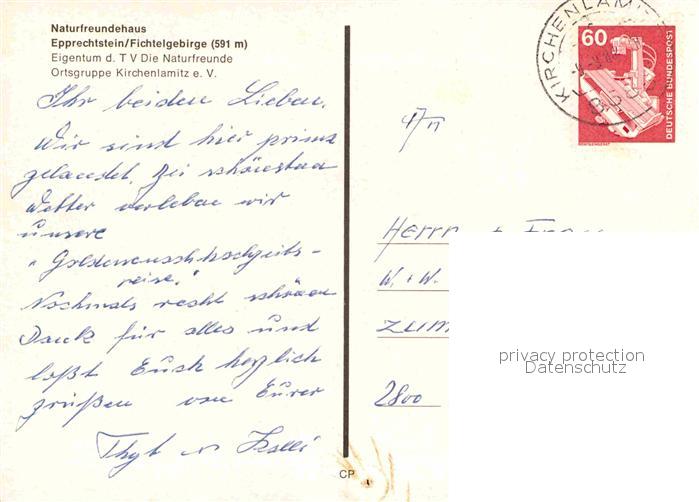 Naturfreundehaus
Epprechtstein/Fichtelgebirge (591 m)
Eigentum d. T V Die Naturfreunde
Ortsgruppe Kirchenlamitz e. V.
Ihr beiden Lieben.
Wir sind hier prima
gelandet. Bei schönstem
Wetter verleben wir
unsere
"Goldenenhochzeits-
reise."
Nochmals recht schönen
Dank für alles und
laßt Euch herzlich
grüßen von Eurer
KIRCHENLAMITZ
60
DEUTSCHE BUNDESPOST
RÖNTGENGERÄT
Herrn + Frau
W. + W.
2800
privacy protection
Datenschutz
CP